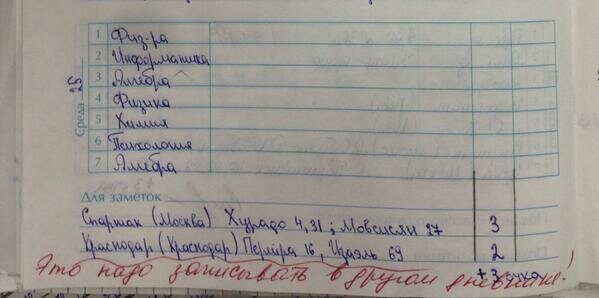 Среда 25
1 Физ-ра
2 Информатика
3 Алгебра
4 Физика
5 Химия
6 Психология
7 Алгебра
Для заметок
Спартак (Москва) Хурадо 4,31 ; Мовсисян 27 3
Краснодар (Краснодар) Перейра 16, Изаэль 69 2
+3 очка
Это надо записывать в другом дневнике!